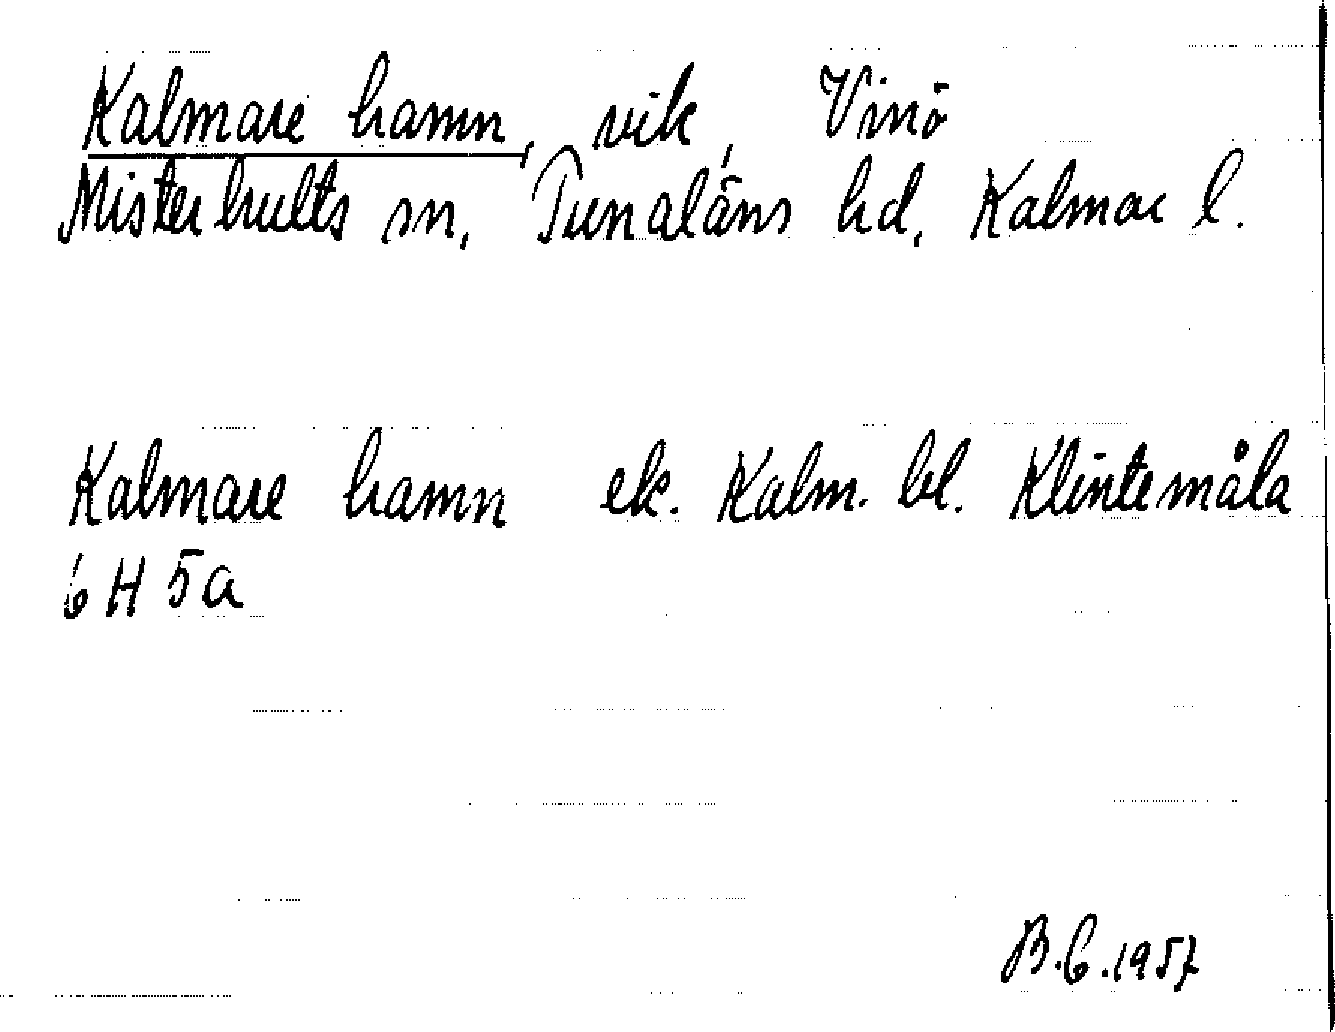 Kalmare hamn, vik, Vinö
Misterhults sn, Tunaläns hd, Kalmar l.
Kalmare hamn ek. Kalm. bl. Klintemåla
6 H 5a
B.G.1957